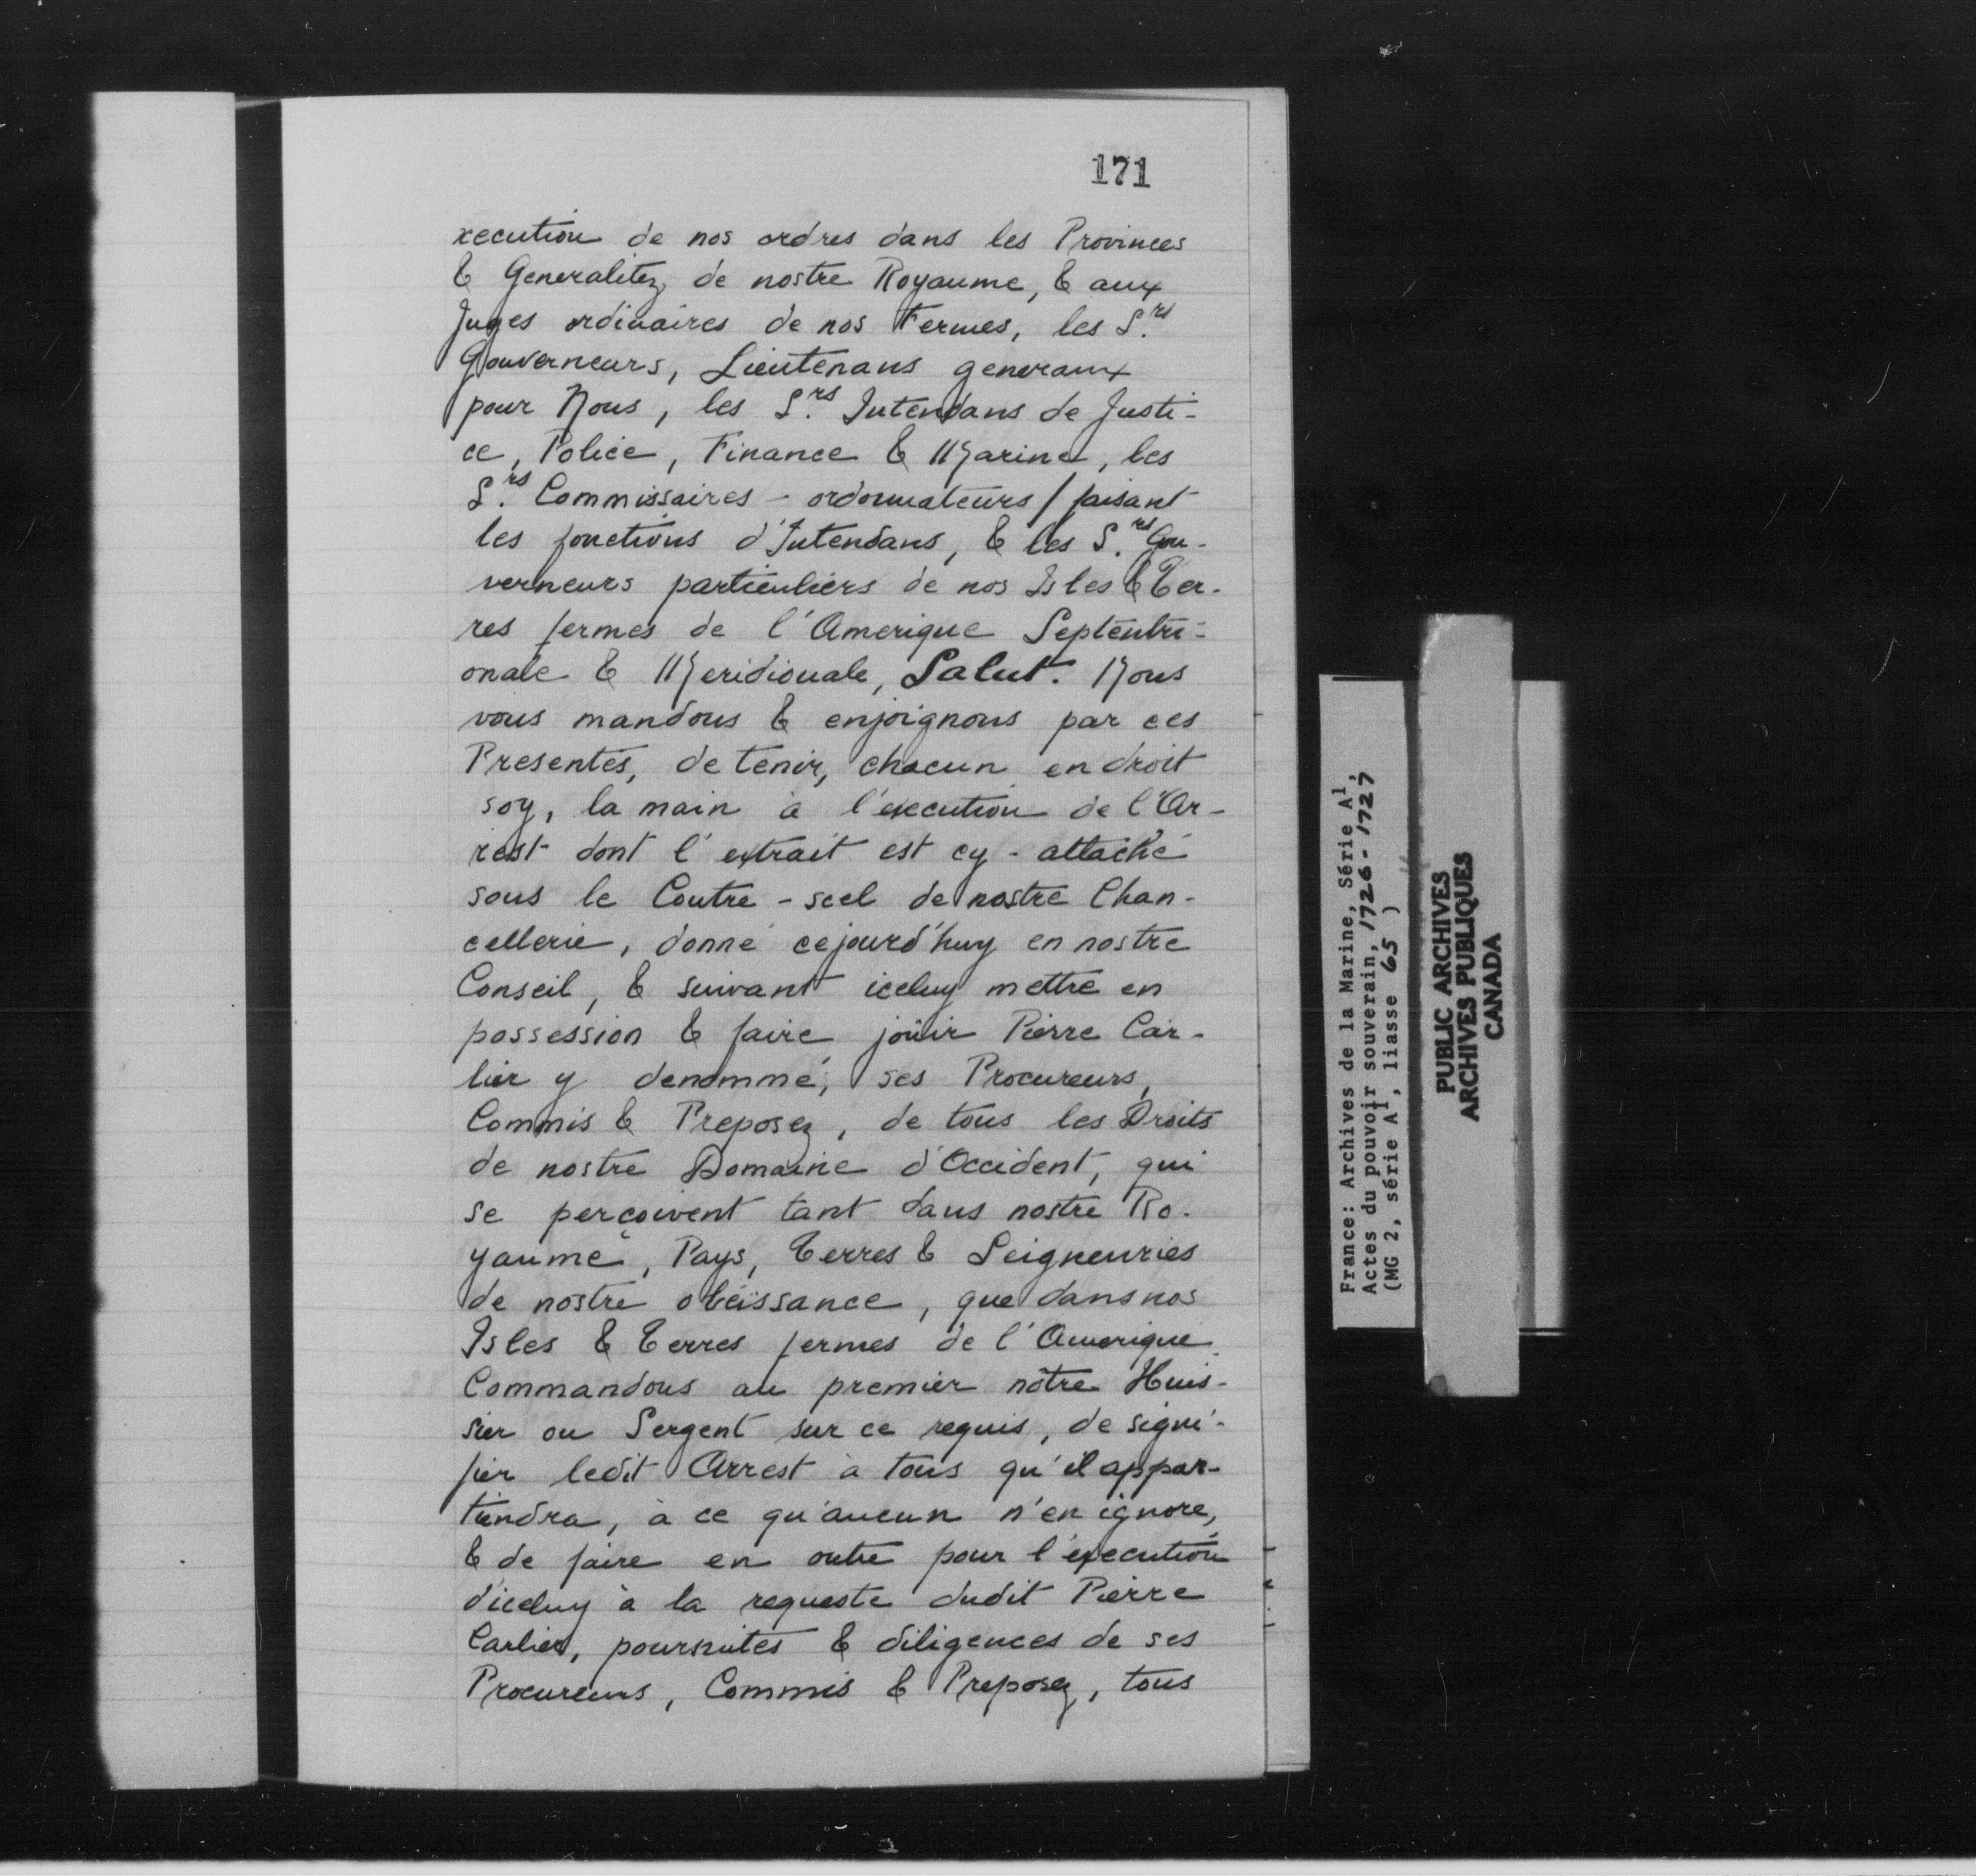 171
xecution de nos ordres dans les Provinces
& Generalitez de nostre Royaume, & aux
Juges ordinaires de nos Fermes, les S.rs
Gouverneurs, Lieutenans generaux
pour Nous, les S.rs Intendans de Justi-
ce, Police, Finance & Marine, les
S.rs Commissaires - ordonnateurs / faisant
les fonctions d'Intendans, & les S.rs Gou-
verneurs particuliers de nos Isles & Ter-
res fermes de l'Amerique Septentri-
onale & Meridionale, Salut. Nous
vous mandons & enjoignons par ces
Presentes, de tenir, chacun en droit
soy, la main a l'execution de l'Ar-
rest dont l'extrait est cy-attaché
sous le Contre-scel de nostre Chan-
cellerie, donné cejourd'huy en nostre
Conseil, & suivant iceluy mettre en
possession & faire joüir Pierre Car-
lier y denommé, ses Procureurs,
Commis & Preposez, de tous les Droits
de nostre Domaine d'Occident, qui
se perçoivent tant dans nostre Ro-
yaume, Pays, Terres & Seigneuries
de nostre obéissance, que dans nos
Isles & Terres fermes de l'Amerique.
Commandons au premier nôtre Huis-
sier ou Sergent sur ce requis, de signi-
fier ledit Arrest à tous qu'il appar-
tiendra, à ce qu'aucun n'en ignore,
& de faire en outre pour l'execution
d'iceluy à la requeste dudit Pierre
Carlier, poursuites & diligences de ses
Procureurs, Commis & Preposez, tous
France: Archives de la Marine, Série A1,
Actes du pouvoir souverain, 1726-1727
(MG 2, série A1, liasse 65 )
PUBLIC ARCHIVES
ARCHIVES PUBLIQUES
CANADA